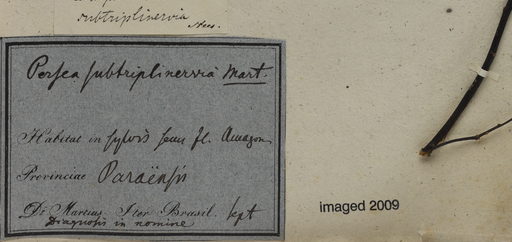 subtriplinervia
Nees.
Persea subtriplinervia Mart.
Habitat in sylvis secus fl. Amazon.
Provinciae Paraënsis
Dr. Martius Iter Brasil. sept
Diagnosis in nomine
imaged 2009